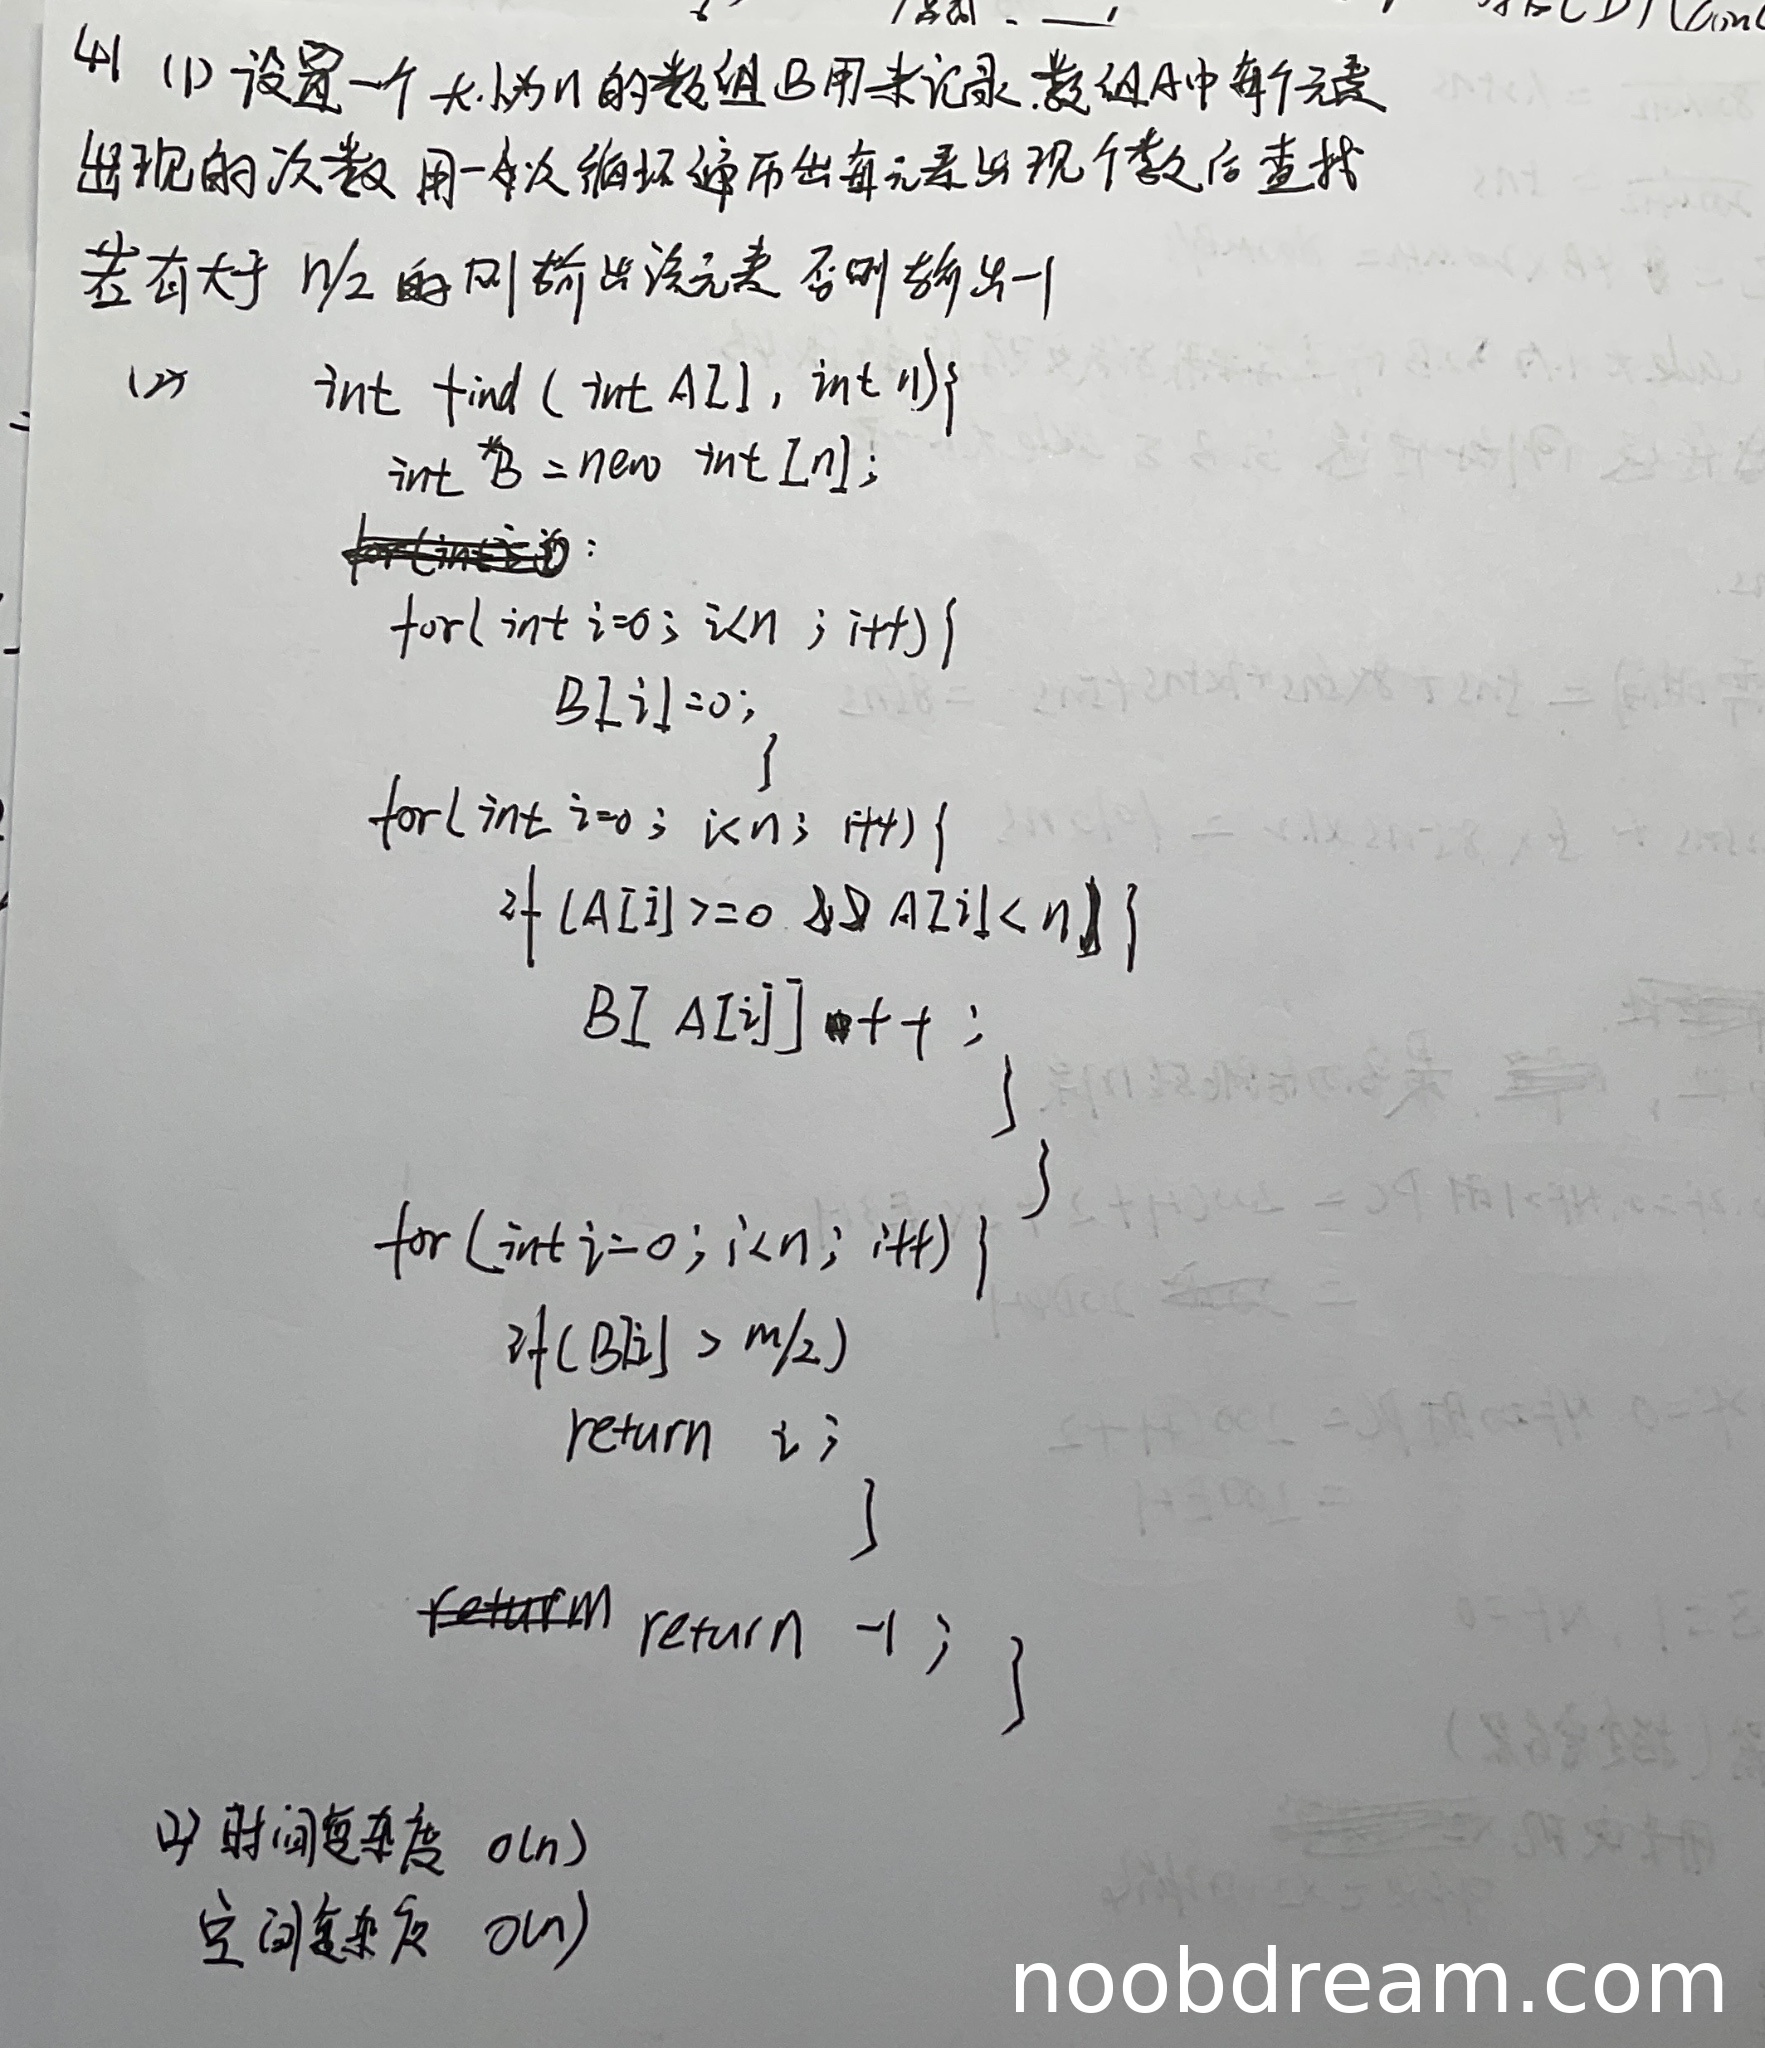 41 (1) 设置一个大小为n的数组B用来记录数组A中每个元素
出现的次数 用一次循环遍历出每元素出现个数后查找
若有大于 n/2 的则输出该元素 否则输出-1
(2) int find ( int A[], int n){
int *B = new int [n];
for( int i=0; i<n ; i++){
B[i]=0;
}
for( int i=0; i<n; i++){
if (A[i]>=0 && A[i]<n){
B[ A[i]] ++ ;
}
}
for (int i=0; i<n; i++){
if (B[i] > m/2)
return i;
}
return -1; }
时间复杂度 O(n)
空间复杂度 O(n)
noobdream.com